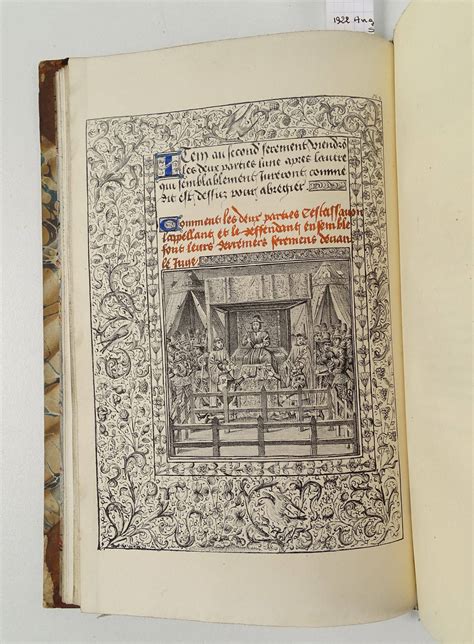 1922 Aug
Item au second serement viendrõ
les deux parties lune apres lautre
qui semblablement Jureront comme
dit est dessus pour abregier
Comment les deux parties Cestassauoir
lappellant et le deffendant ensemble
font leurs derreniers seremens deuant
le Juge